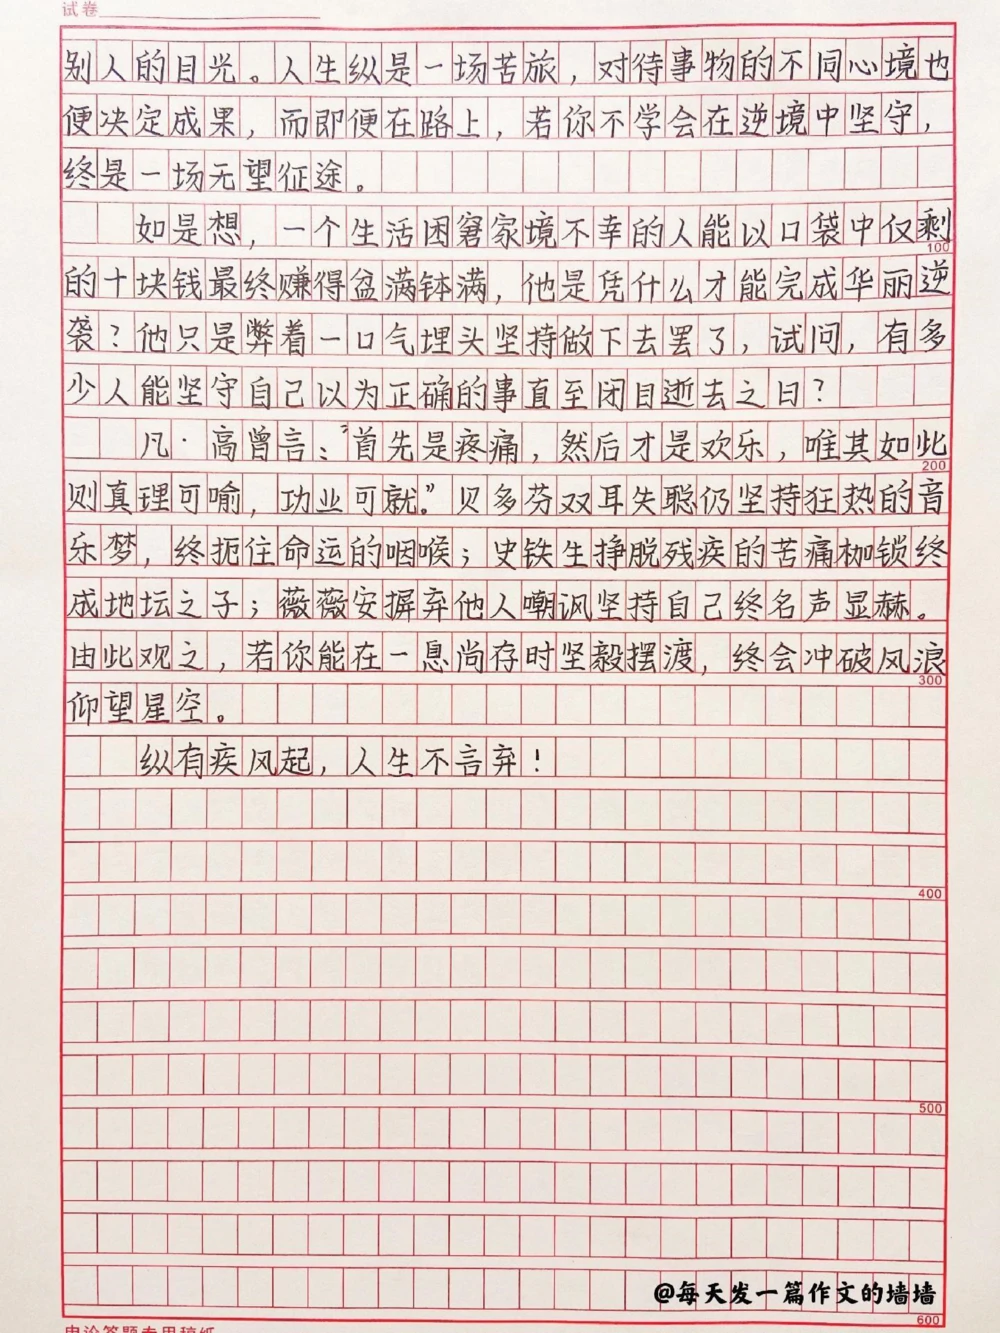 试卷
别人的目光。人生纵是一场苦旅，对待事物的不同心境也
便决定成果，而即便在路上，若你不学会在逆境中坚守，
终是一场无望征途。
如是想，一个生活困窘家境不幸的人能以口袋中仅剩
100
的十块钱最终赚得盆满钵满，他是凭什么才能完成华丽逆
袭？他只是弊着一口气埋头坚持做下去罢了，试问，有多
少人能坚守自己以为正确的事直至闭目逝去之日？
凡·高曾言：“首先是疼痛，然后才是欢乐，唯其如此
200
则真理可喻，功业可就。”贝多芬双耳失聪仍坚持狂热的音
乐梦，终扼住命运的咽喉；史铁生挣脱残疾的苦痛枷锁终
成地坛之子；薇薇安摒弃他人嘲讽坚持自己终名声显赫。
由此观之，若你能在一息尚存时坚毅摆渡，终会冲破风浪
300
仰望星空。
纵有疾风起，人生不言弃！
400
500
@每天发一篇作文的墙墙
600
申论答题专用稿纸